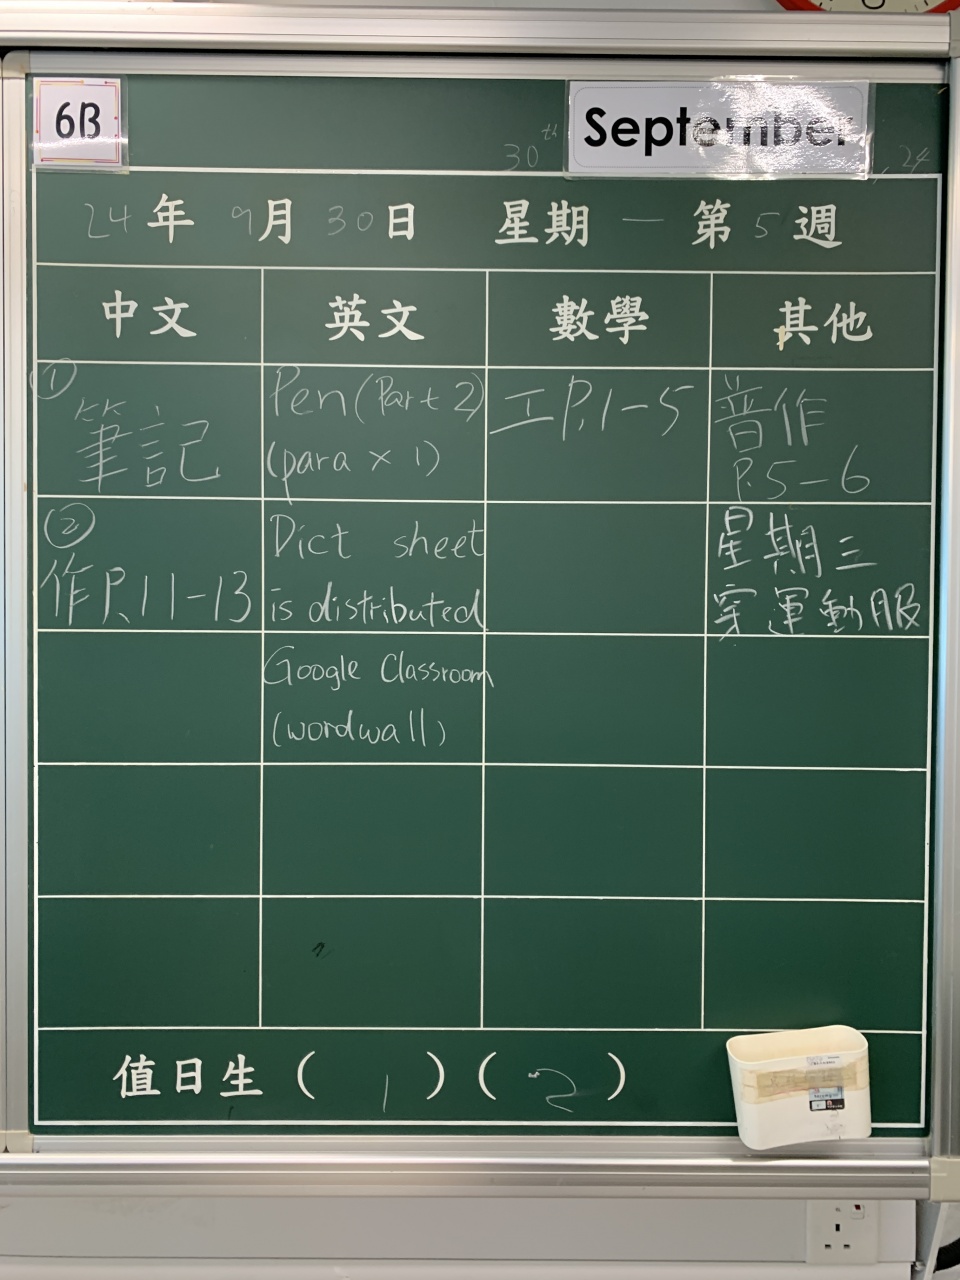 6B
September
30th , 24
24年 9月 30日 星期一 第5週
中文 英文 數學 其他
①
筆記
Pen (Part 2)
(para × 1)
工P.1-5
普作
P.5-6
②
作P.11-13
Dict sheet
is distributed
星期三
穿運動服
Google Classroom
(wordwall)
值日生 ( 1 ) ( 2 )